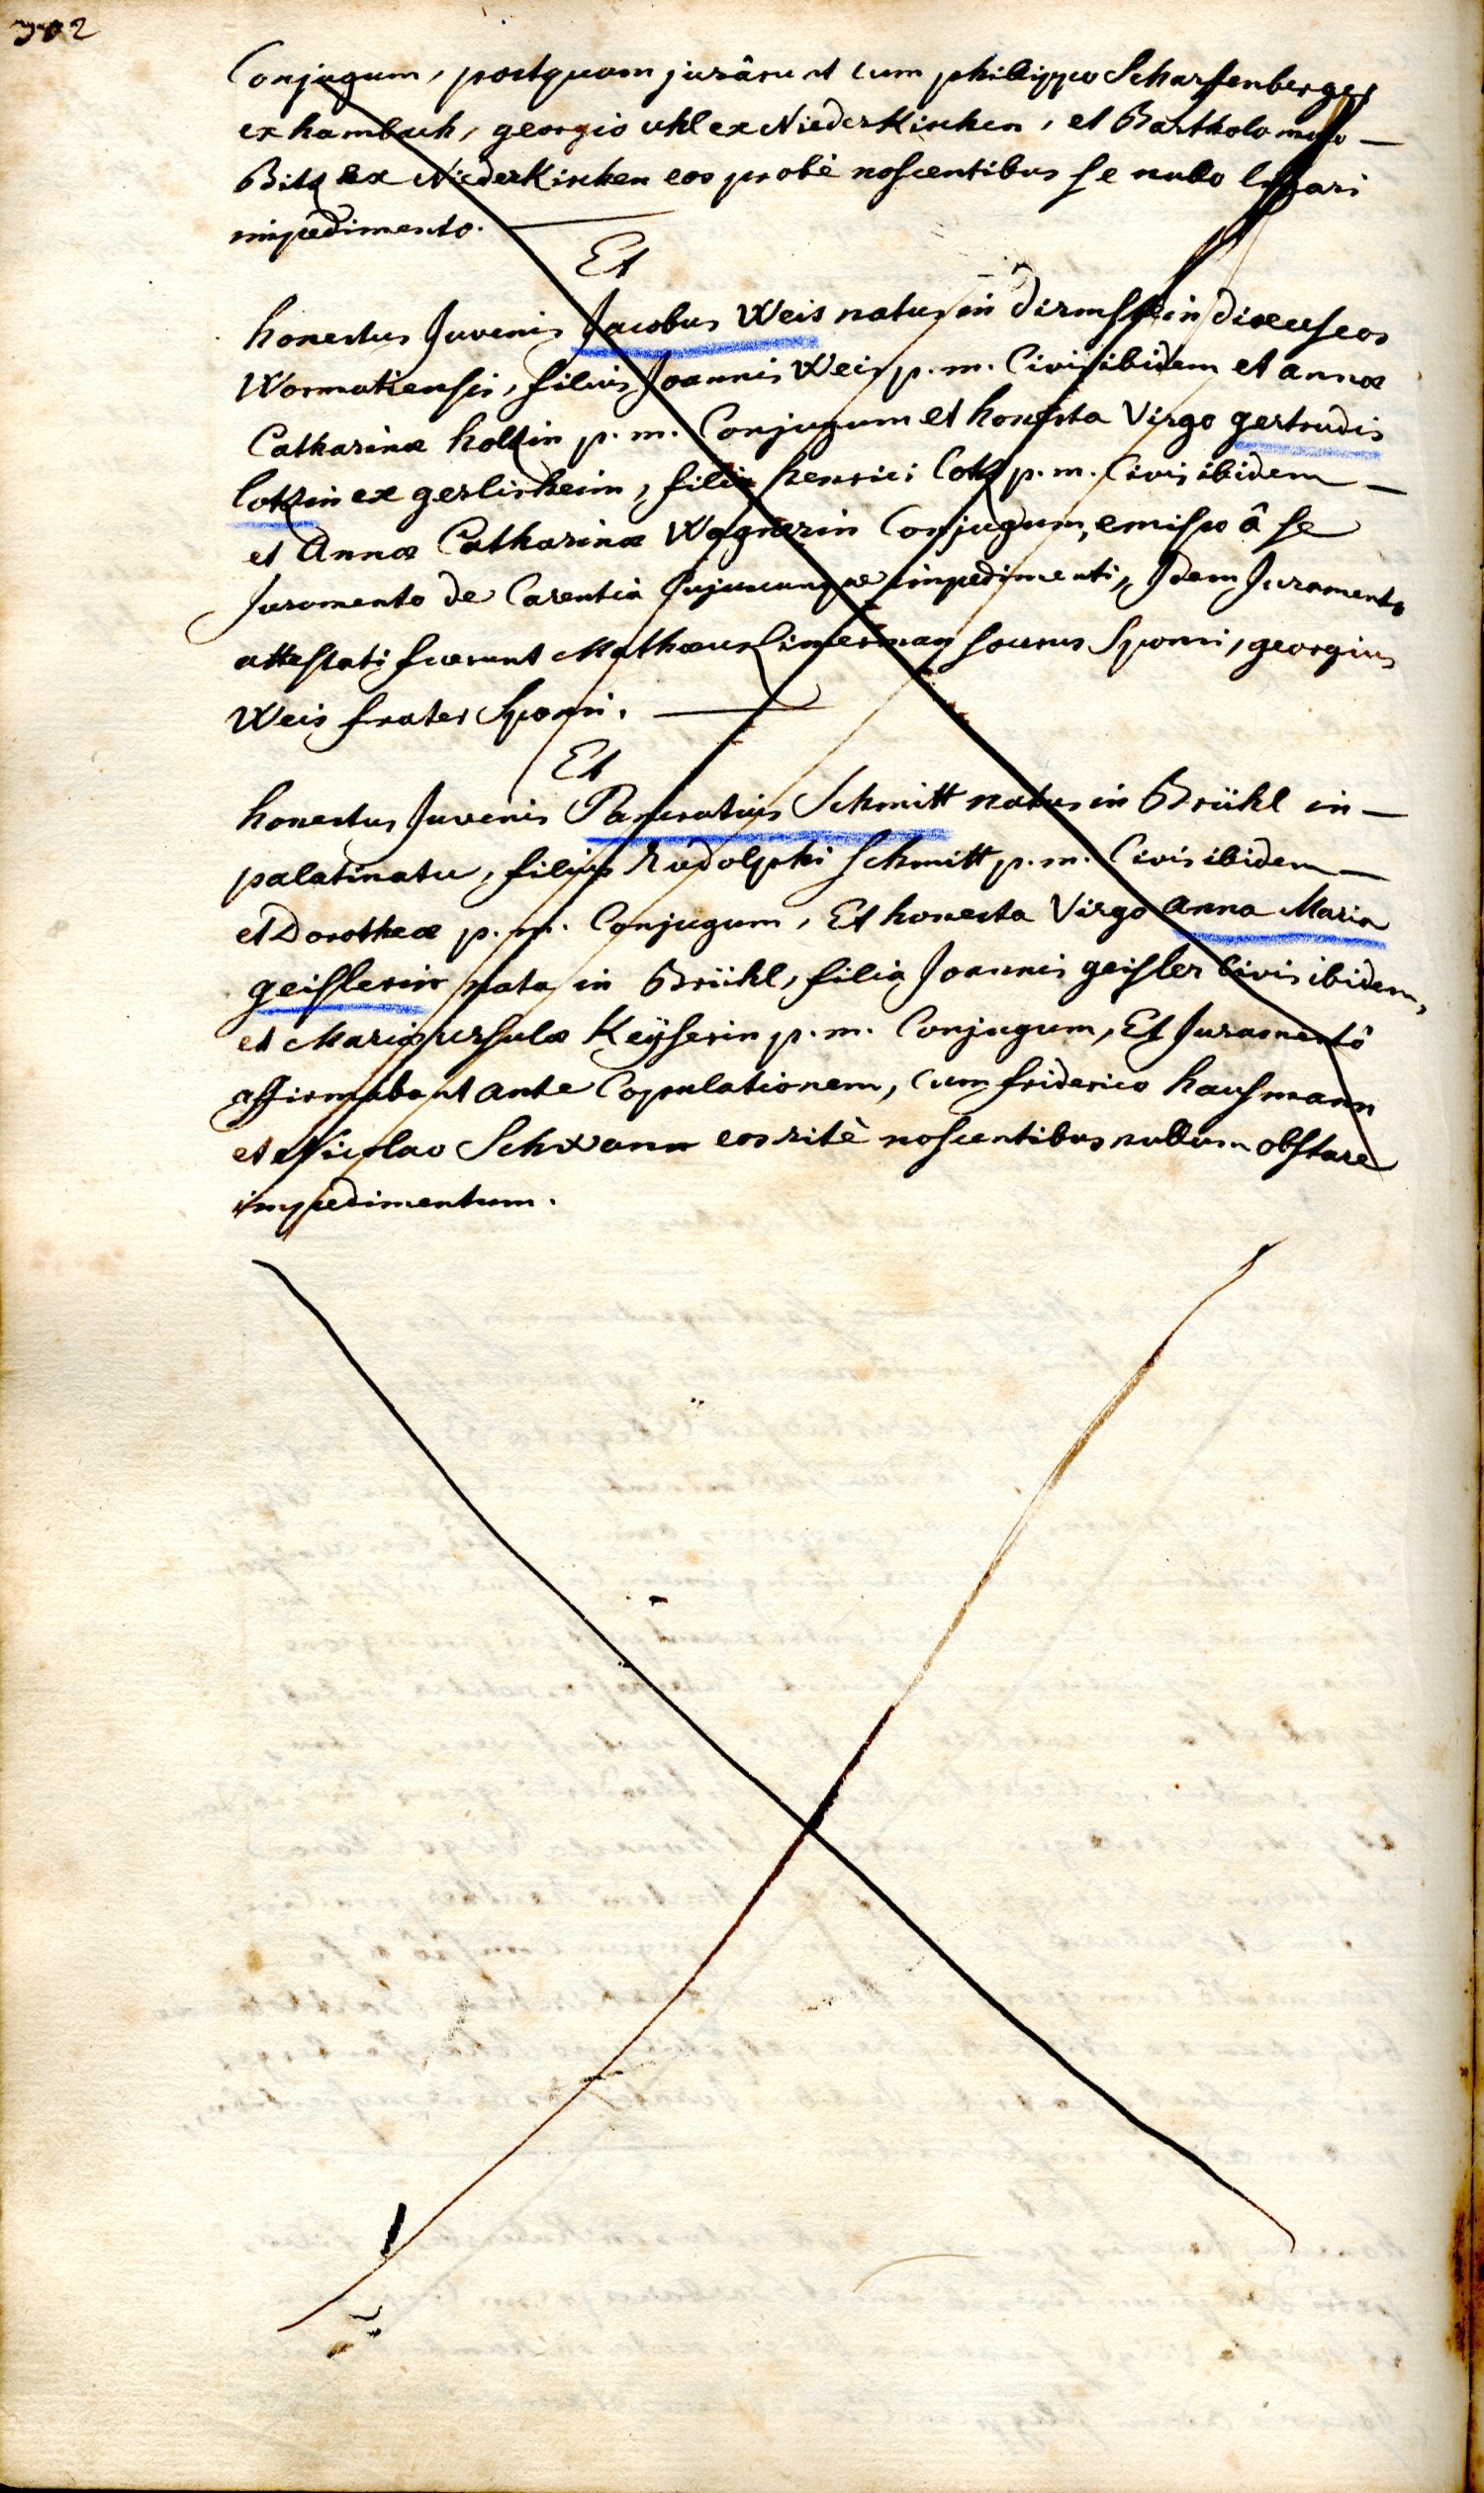 302
Conjugum, postquam jurârunt cum philippo Scharfenberger
ex hambach, georgio uhl ex NiederKirchen, et Bartholomæo —
Bitz ex NiederKirchen eos probè noscentibus se nullo ligari
impedimento.
Et
honestus Juvenis Jacobus Weis natus in dirmstein dioeceseos
Wormatiensis, filius Joannis Weis p.m. Civis ibidem et annæ
Catharinæ holtzin p.m. Conjugum et honesta Virgo gertrudis
lotzin ex gerlisheim, filia henrici lotz p.m. Civis ibidem —
et Annæ Catharinæ Wagnerin Conjugum, emisso â se
Juramento de Carentia Cujuscunque impedimenti, Idem Juramento
attestati fuerunt Mathæus Zimerman socrus Sponsi, georgius
Weis frater Sponsi. —
Et
honestus Juvenis Pancratius Schmitt natus in Brühl in —
palatinatu, filius Rudolphi Schmitt p.m. Civis ibidem —
et Dorotheæ p.m. Conjugum, Et honesta Virgo anna Maria
geislerin nata in Brühl, filia Joannis geisler Civis ibidem,
et Mariæ ursulæ Keÿserin p.m. Conjugum, Et Juramentô
affirmabant ante Copulationem, cum friderico hausmann
et Nicolao Schwann eos ritè noscentibus nullum obstare
impedimentum.